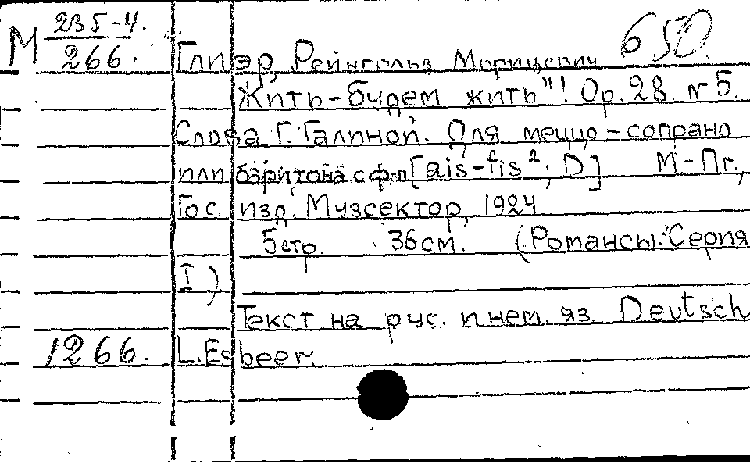 М 235-4. 650.
266. Глиэр, Рейнгольд Морицевич
Жить-будем жить"! Op. 28 №5.
Слова Г. Галиной. Для меццо-сопрано
или баритона с ф-п [ais-fis², D] М-Пг,
Гос. изд. Музсектор, 1924
5 стр. 36 см. (Романсы. Серия
I)
Текст на рус. и нем. яз. Deutsch
1266. L. Esbeer.